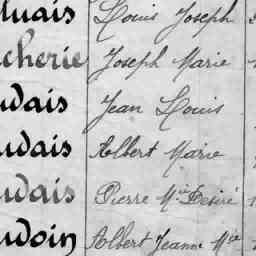 uais Louis Joseph
cherie Joseph Marie
udais Jean Louis
udais Albert Marie
udais Pierre Mie Désiré
udoin Albert Jeanne Mie